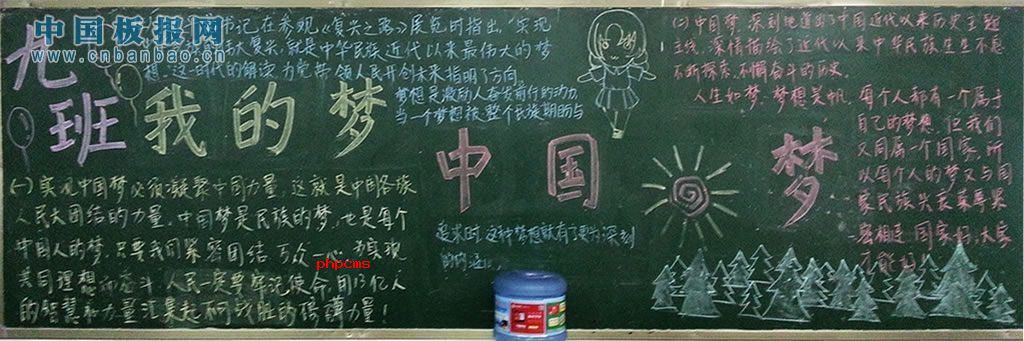 中国板报网
www.cnbanbao.cn
九班
我的梦
中国梦
书记在参观《复兴之路》展览时指出,"实现
伟大复兴,就是中华民族近代以来最伟大的梦
想,这一时代的解读,为党带领人民开创未来指明了方向。
梦想是激励人奋发前行的动力,
当一个梦想被整个民族期盼与
追求时,这种梦想就有了更为深刻
的内涵。
(一)实现中国梦必须凝聚中国力量,这就是中国各族
人民大团结的力量。中国梦是民族的梦,也是每个
中国人的梦,只要我们紧密团结,万众一心,为实现
共同理想而奋斗,人民一定要牢记使命,用13亿人
的智慧和力量汇集起不可战胜的磅礴力量!
phpcms
(二)中国梦,深刻地道出了中国近代以来历史主题
主线,深情描绘了近代以来中华民族生生不息
不断探索、不懈奋斗的历史。
人生如梦,梦想是帆,每个人都有一个属于
自己的梦想,但我们
又同属一个国家,所
以每个人的梦又与国
家民族
密相连,国家好,大家
才能好!